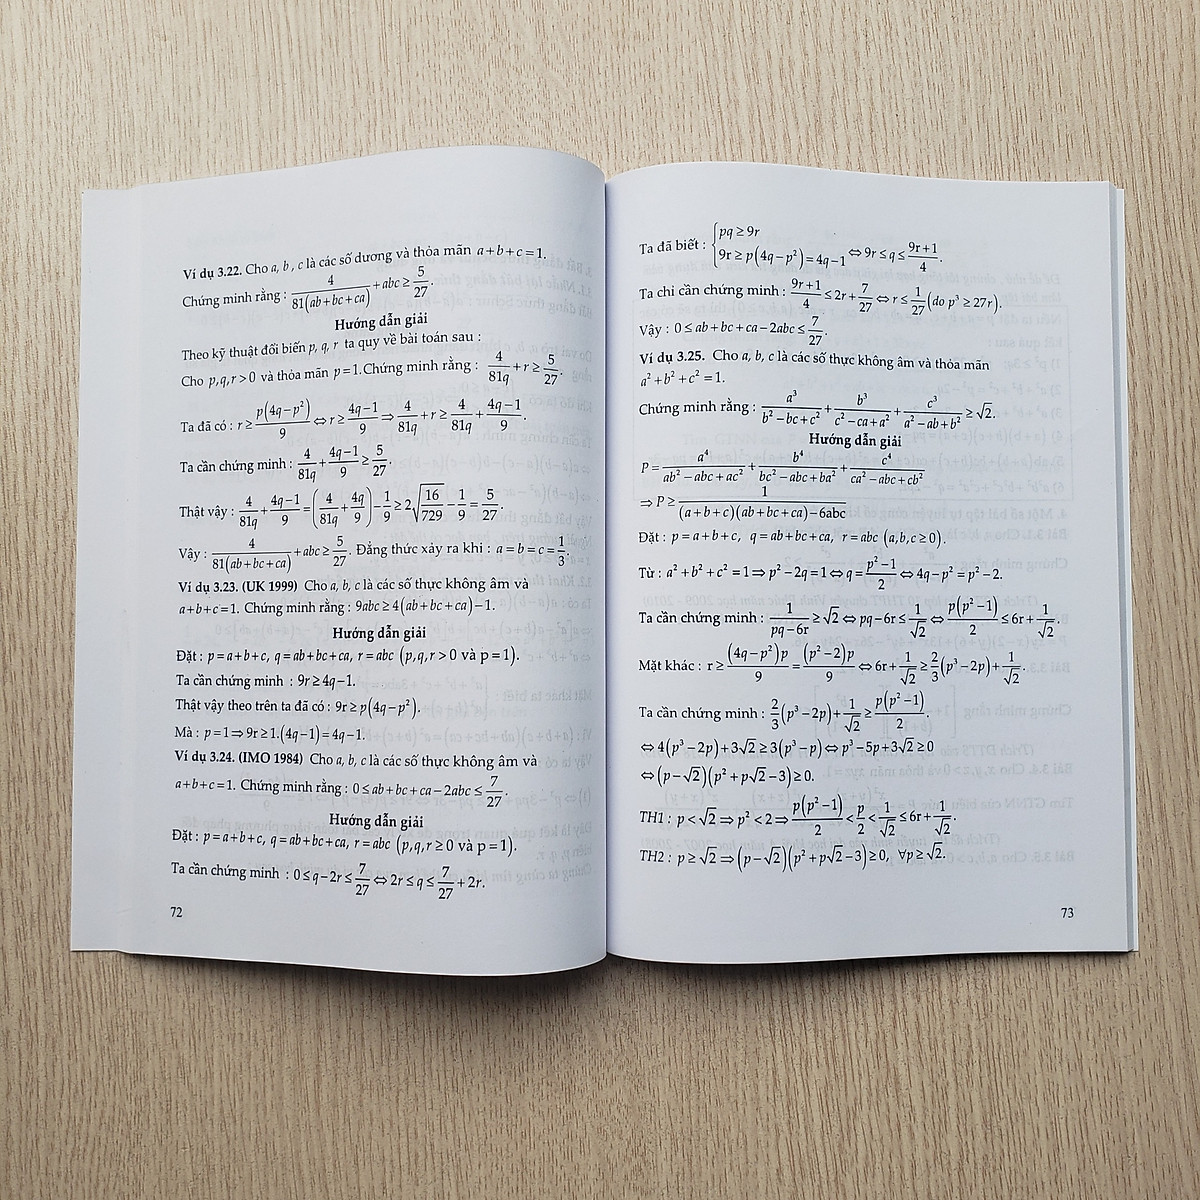 Ví dụ 3.22. Cho a, b, c là các số dương và thỏa mãn a+b+c=1.
Chứng minh rằng : 4/(81(ab+bc+ca)) + abc ≥ 5/27.
Hướng dẫn giải
Theo kỹ thuật đổi biến p, q, r ta quy về bài toán sau :
Cho p,q,r>0 và thỏa mãn p=1.Chứng minh rằng : 4/(81q) + r ≥ 5/27.
Ta đã có : r ≥ p(4q−p²)/9 ⇔ r ≥ (4q−1)/9 ⇒ 4/(81q) + r ≥ 4/(81q) + (4q−1)/9.
Ta cần chứng minh : 4/(81q) + (4q−1)/9 ≥ 5/27.
Thật vậy : 4/(81q) + (4q−1)/9 = (4/(81q) + 4q/9) − 1/9 ≥ 2√(16/729) − 1/9 = 5/27.
Vậy : 4/(81(ab+bc+ca)) + abc ≥ 5/27. Đẳng thức xảy ra khi : a=b=c=1/3.
Ví dụ 3.23. (UK 1999) Cho a, b, c là các số thực không âm và
a+b+c=1. Chứng minh rằng : 9abc ≥ 4(ab+bc+ca)−1.
Hướng dẫn giải
Đặt : p=a+b+c, q=ab+bc+ca, r=abc (p,q,r>0 và p=1).
Ta cần chứng minh : 9r ≥ 4q−1.
Thật vậy theo trên ta đã có : 9r ≥ p(4q−p²).
Mà : p=1 ⇒ 9r ≥ 1.(4q−1)=4q−1.
Ví dụ 3.24. (IMO 1984) Cho a, b, c là các số thực không âm và
a+b+c=1. Chứng minh rằng : 0 ≤ ab+bc+ca−2abc ≤ 7/27.
Hướng dẫn giải
Đặt : p=a+b+c, q=ab+bc+ca, r=abc (p,q,r≥0 và p=1).
Ta cần chứng minh : 0 ≤ q−2r ≤ 7/27 ⇔ 2r ≤ q ≤ 7/27 + 2r.
72
Ta đã biết : { pq ≥ 9r
9r ≥ p(4q−p²)=4q−1 ⇔ 9r ≤ q ≤ (9r+1)/4.
Ta chỉ cần chứng minh : (9r+1)/4 ≤ 2r + 7/27 ⇔ r ≤ 1/27 (do p³ ≥ 27r).
Vậy : 0 ≤ ab+bc+ca−2abc ≤ 7/27.
Ví dụ 3.25. Cho a, b, c là các số thực không âm và thỏa mãn
a²+b²+c²=1.
Chứng minh rằng : a³/(b²−bc+c²) + b³/(c²−ca+a²) + c³/(a²−ab+b²) ≥ √2.
Hướng dẫn giải
P = a⁴/(ab²−abc+ac²) + b⁴/(bc²−abc+ba²) + c⁴/(ca²−abc+cb²)
⇒ P ≥ 1/((a+b+c)(ab+bc+ca)−6abc)
Đặt : p=a+b+c, q=ab+bc+ca, r=abc (a,b,c≥0).
Từ : a²+b²+c²=1 ⇒ p²−2q=1 ⇔ q=(p²−1)/2 ⇔ 4q−p²=p²−2.
Ta cần chứng minh : 1/(pq−6r) ≥ √2 ⇔ pq−6r ≤ 1/√2 ⇔ p(p²−1)/2 ≤ 6r + 1/√2.
Mặt khác : r ≥ (4q−p²)p/9 = (p²−2)p/9 ⇔ 6r + 1/√2 ≥ 2/3(p³−2p) + 1/√2.
Ta cần chứng minh : 2/3(p³−2p) + 1/√2 ≥ p(p²−1)/2.
⇔ 4(p³−2p)+3√2 ≥ 3(p³−p) ⇔ p³−5p+3√2 ≥ 0
⇔ (p−√2)(p²+p√2−3) ≥ 0.
TH1 : p<√2 ⇒ p²<2 ⇒ p(p²−1)/2 < p/2 < 1/√2 ≤ 6r + 1/√2.
TH2 : p≥√2 ⇒ (p−√2)(p²+p√2−3) ≥ 0, ∀p≥√2.
73